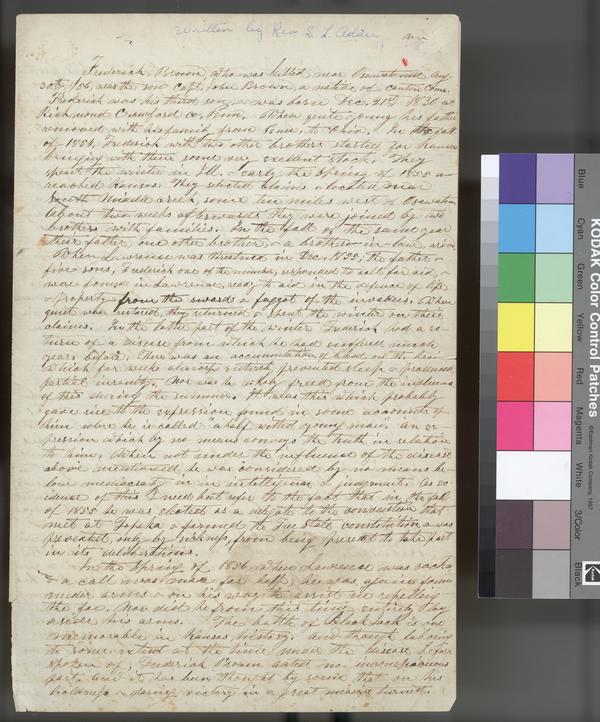 Written by Rev S. L. Adair
Frederick Brown, who was killed near Osawatomie Aug.
30th 1856, was the son of Capt. John Brown, a native of Conn.
Frederick was his third son, & was born Dec. 21st 1830 at
Richmond Crawford co. Penn. When quite young his father
removed with his family from Penn. to Ohio. In the fall
of 1854, Frederick with two other brothers started for Kansas
bringing with them some very excellent stock. They
spent the winter in Ill. & early the Spring of 1855
reached Kansas. They selected claims & located near
Middle creek, some ten miles west of Osawatomie
About two weeks afterwards they were joined by two
brothers with families. In the fall of the same year
their father, one other brother, & a brother-in-law, arrived
When Lawrence was threatened in Dec. 1855, the father &
five sons, Frederick one of the number, responded to call for aid, &
were found in Lawrence, ready to aid in the defence of life
& property from the sword & fagot of the invaders. When
quiet was restored, they returned & spent the winter on their
claims. In the latter part of the winter Frederick had a re-
turn of a disease from which he had suffered much
years before. There was an accumulation of blood on the brain
which for weeks almost entirely prevented sleep & produced
partial insanity. Nor was he wholly freed from the influence
of this during the summer. It was this which probably
gave rise to the expression found in some accounts of
him where he is called "a half witted young man," an ex-
pression which by no means conveys the truth in relation
to him. When not under the influence of the disease
above mentioned, he was considered by no means be-
low mediocrity in intelligence & judgment. As ev-
idence of this I need but refer to the fact that in the fall
of 1855 he was elected as a delegate to the convention that
met at Topeka & formed the Free State constitution, & was
prevented, only by sickness, from being present to take part
in its deliberations.
In the Spring of 1856 when Lawrence was sacked
& a call was made for help, he was again found
under arms & on his way to assist in repelling
the foe. Nor did he from this time entirely lay
aside his arms. The battle of Black Jack is one
memorable in Kansas history. And though laboring
to some extent at the time under the disease before
spoken of, Frederick Brown acted no inconspicuous
part, and it has been thought by some that on his
boldness & daring victory in a great measure turned.
KODAK Color Control Patches
©Eastman Kodak Company, 1997
Blue
Cyan
Green
Yellow
Red
Magenta
White
3/Color
Black